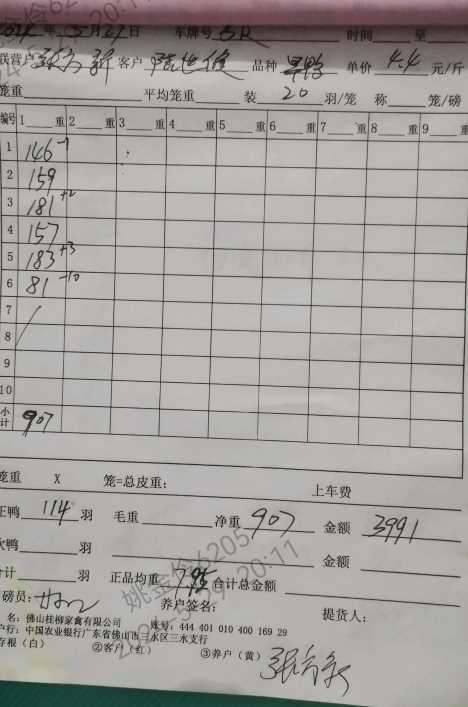 2024年5月29日 车牌号 时间 至
联营户 客户 品种 单价 4.4 元/斤
笼重 平均笼重 装 20 羽/笼 称 笼/磅
编号 1 重 2 重 3 重 4 重 5 重 6 重 7 重 8 重 9 重
1 146 -1
2 159
3 181 +2
4 157
5 183 +3
6 81 -10
7
8
9
10
小计 907
笼重 X 笼=总皮重: 上车费
正鸭 114 羽 毛重 净重 907 金额 3991
次鸭 羽 金额
合计 羽 正品均重 合计总金额
磅员: 养户签名: 提货人:
名: 佛山桂柳家禽有限公司 账号: 444 401 010 400 169 29
户行: 中国农业银行广东省佛山市三水区三水支行
存根（白） ②客户（红） ③养户（黄）
姚金伶6205
20:11